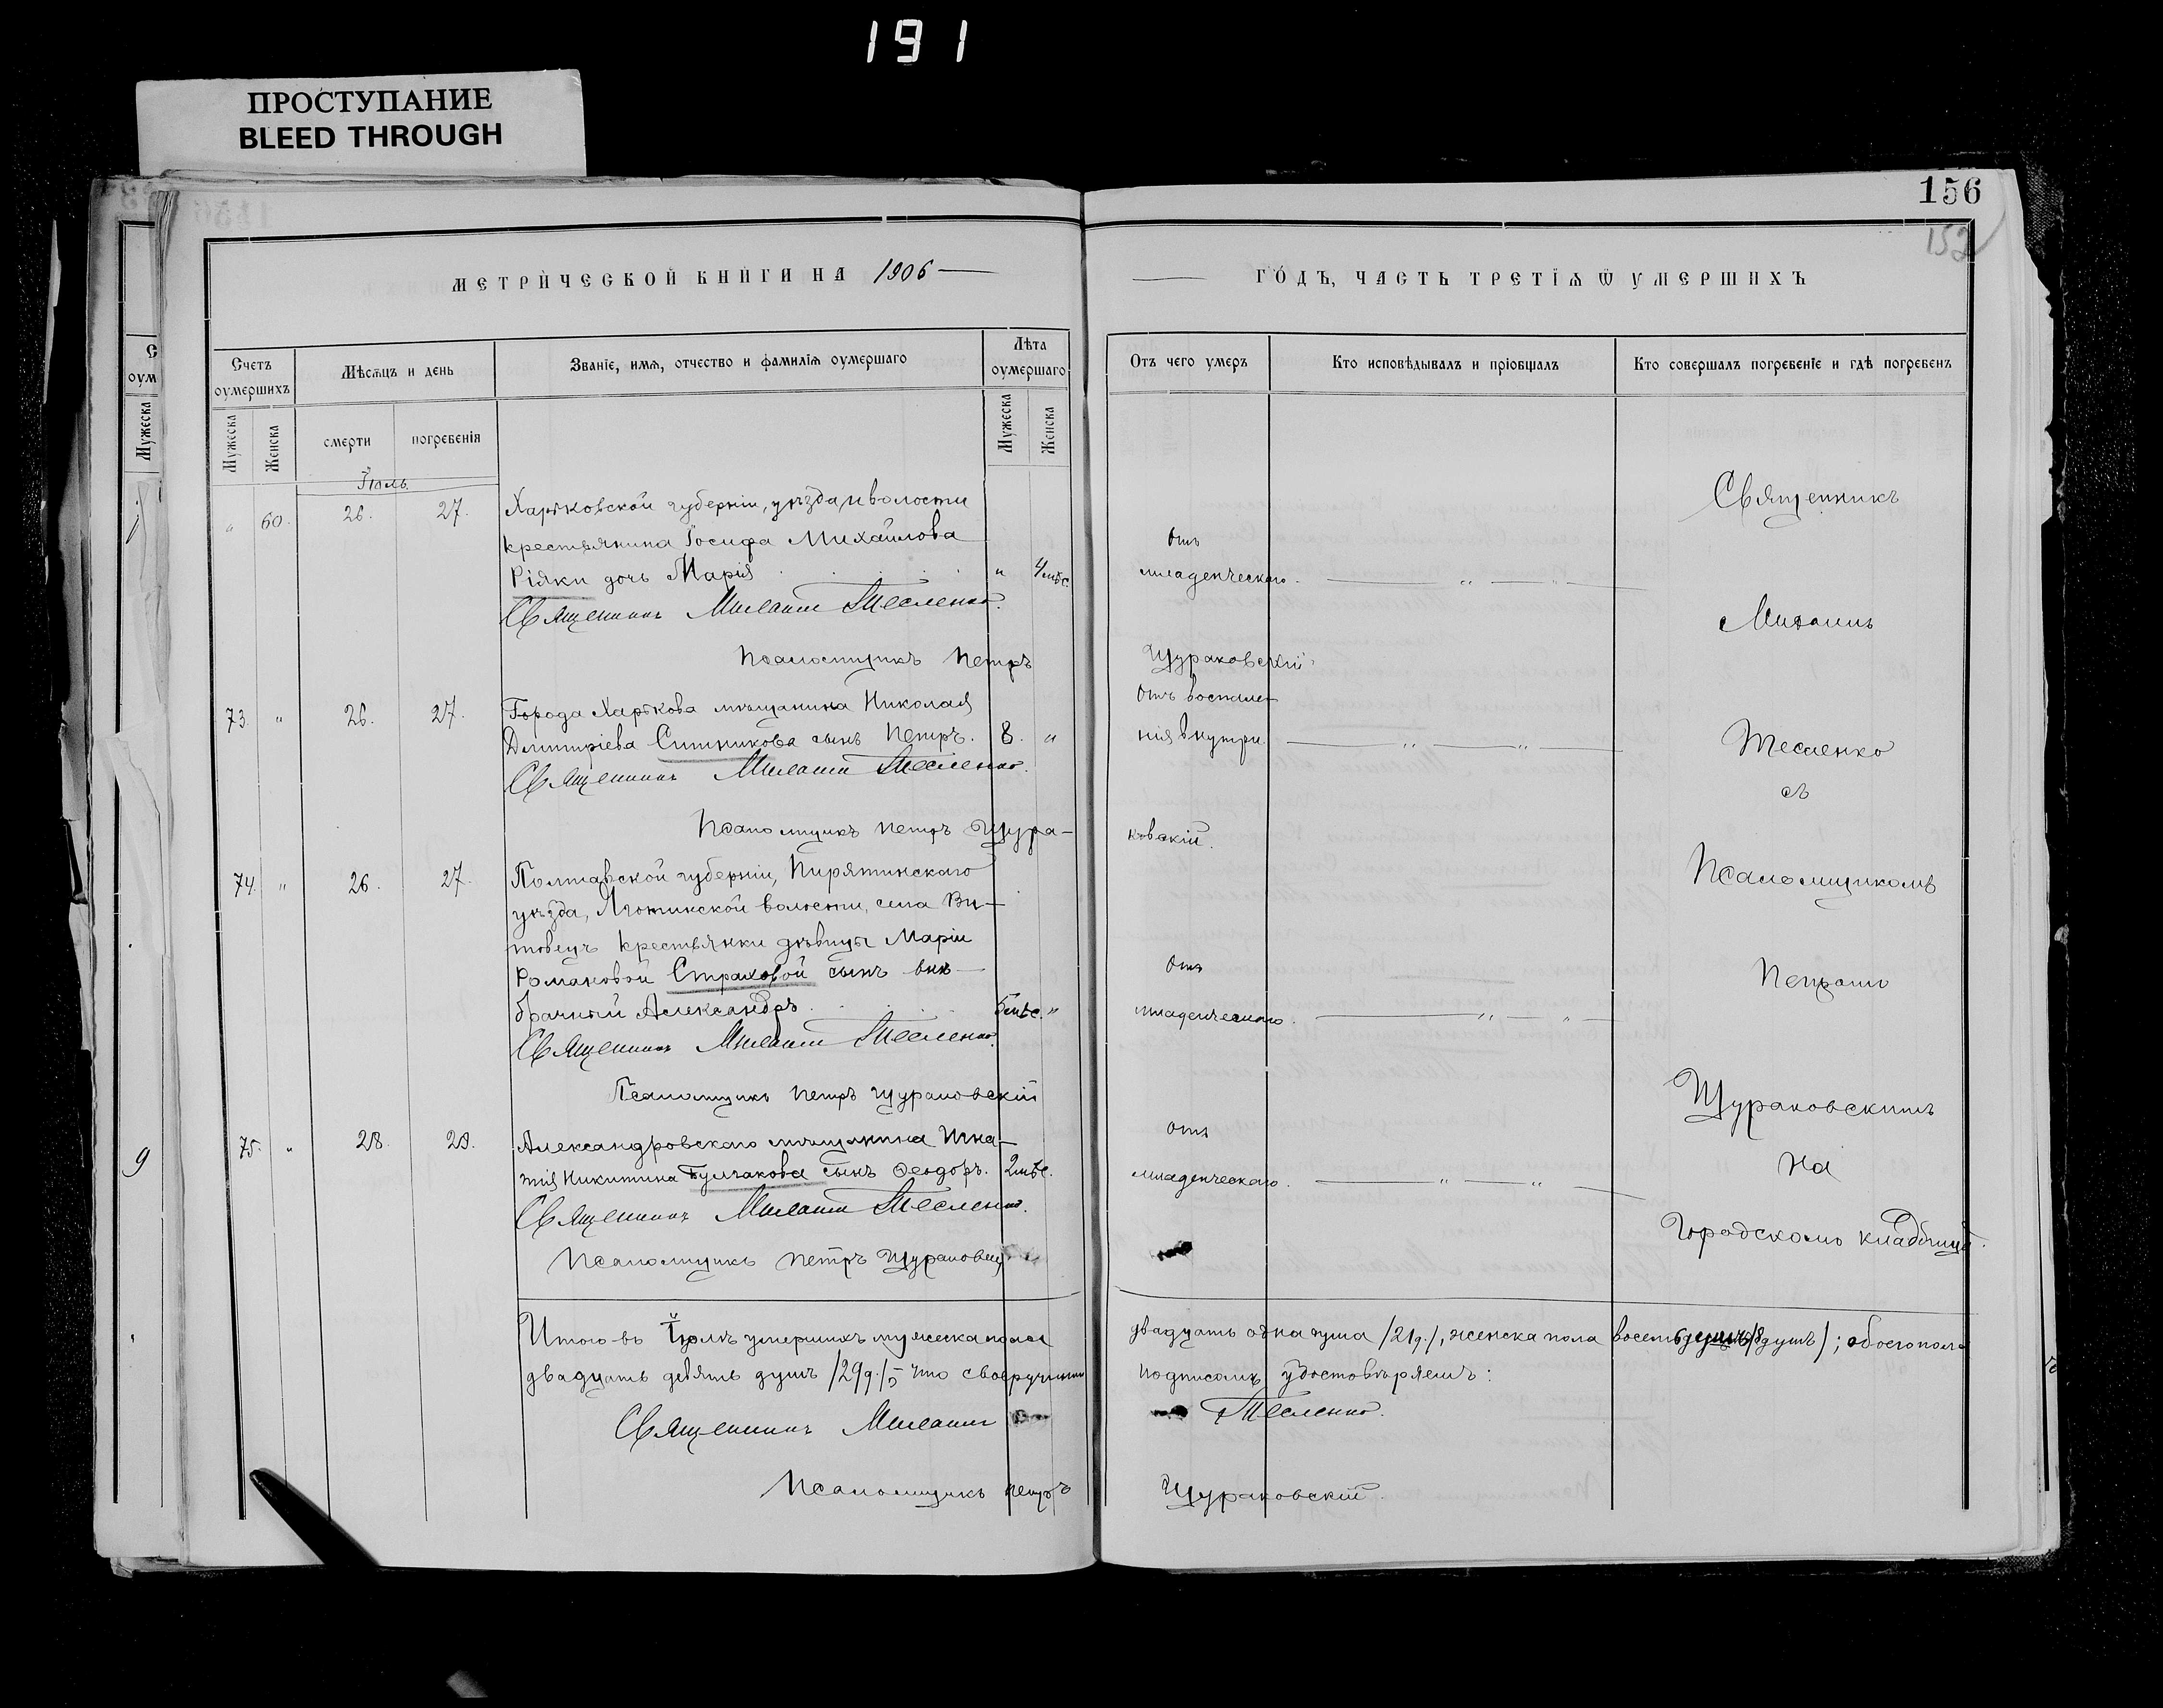 191
ПРОСТУПАНИЕ
BLEED THROUGH
156
152
МЕТРИЧЕСКОЙ КНИГИ НА 1906
ГОДЪ, ЧАСТЬ ТРЕТІѦ Ѿ УМЕРШИХЪ
Счетъ оумершихъ
Мѣсѧцъ и день
Званіе, имѧ, отчество и фамиліѧ оумершаго
Лѣта оумершаго
Отъ чего умеръ
Кто исповѣдывалъ и пріобщалъ
Кто совершалъ погребеніе и гдѣ погребенъ
Мужеска
Женска
смерти
погребенія
Мужеска
Женска
Іюль.
„ 60. 26. 27. Харьковской губерніи, уѣзда и волости
крестьянина Іосифа Михайлова
Ріяки дочь Марія „ 4 мѣс.
Отъ
младенческаго.
Священникъ Тесленко.
Псаломщикъ Петръ Щураковскій
73. „ 26. 27. Города Харькова мѣщанина Николая
Дмитріева Ситникова сынъ Петръ. 8. „
Отъ воспале-
нія внутри.
Священникъ Тесленко.
Псаломщикъ Петръ Щура-
ковскій.
74. „ 26. 27. Полтавской губерніи, Пирятинскаго
уѣзда, волости, села Ви-
товецъ крестьянки дѣвицы Маріи
Романовой Страховой сынъ внѣ-
брачный Александръ 5 мѣс. „
Отъ
младенческаго.
Священникъ Тесленко.
Псаломщикъ Петръ Щураковскій
75. „ 28. 29. Александровскаго мѣщанина Игна-
тія Никитина сынъ Ѳеодоръ. 2 мѣс.
Отъ
младенческаго.
Священникъ Тесленко.
Псаломщикъ Петръ
Священникъ
Тесленко
съ
Псаломщикомъ
Петромъ
Щураковскимъ
на
Городскомъ кладбищѣ.
Итого въ Іюлѣ умершихъ мужеска пола двадцать одна душа /21 д./, женска пола восемь душъ /8 душъ/; обоего пола
двадцать девять душъ /29 д./, что своеручнымъ подписомъ удостовѣряемъ:
Священникъ Тесленко.
Псаломщикъ Петръ Щураковскій.